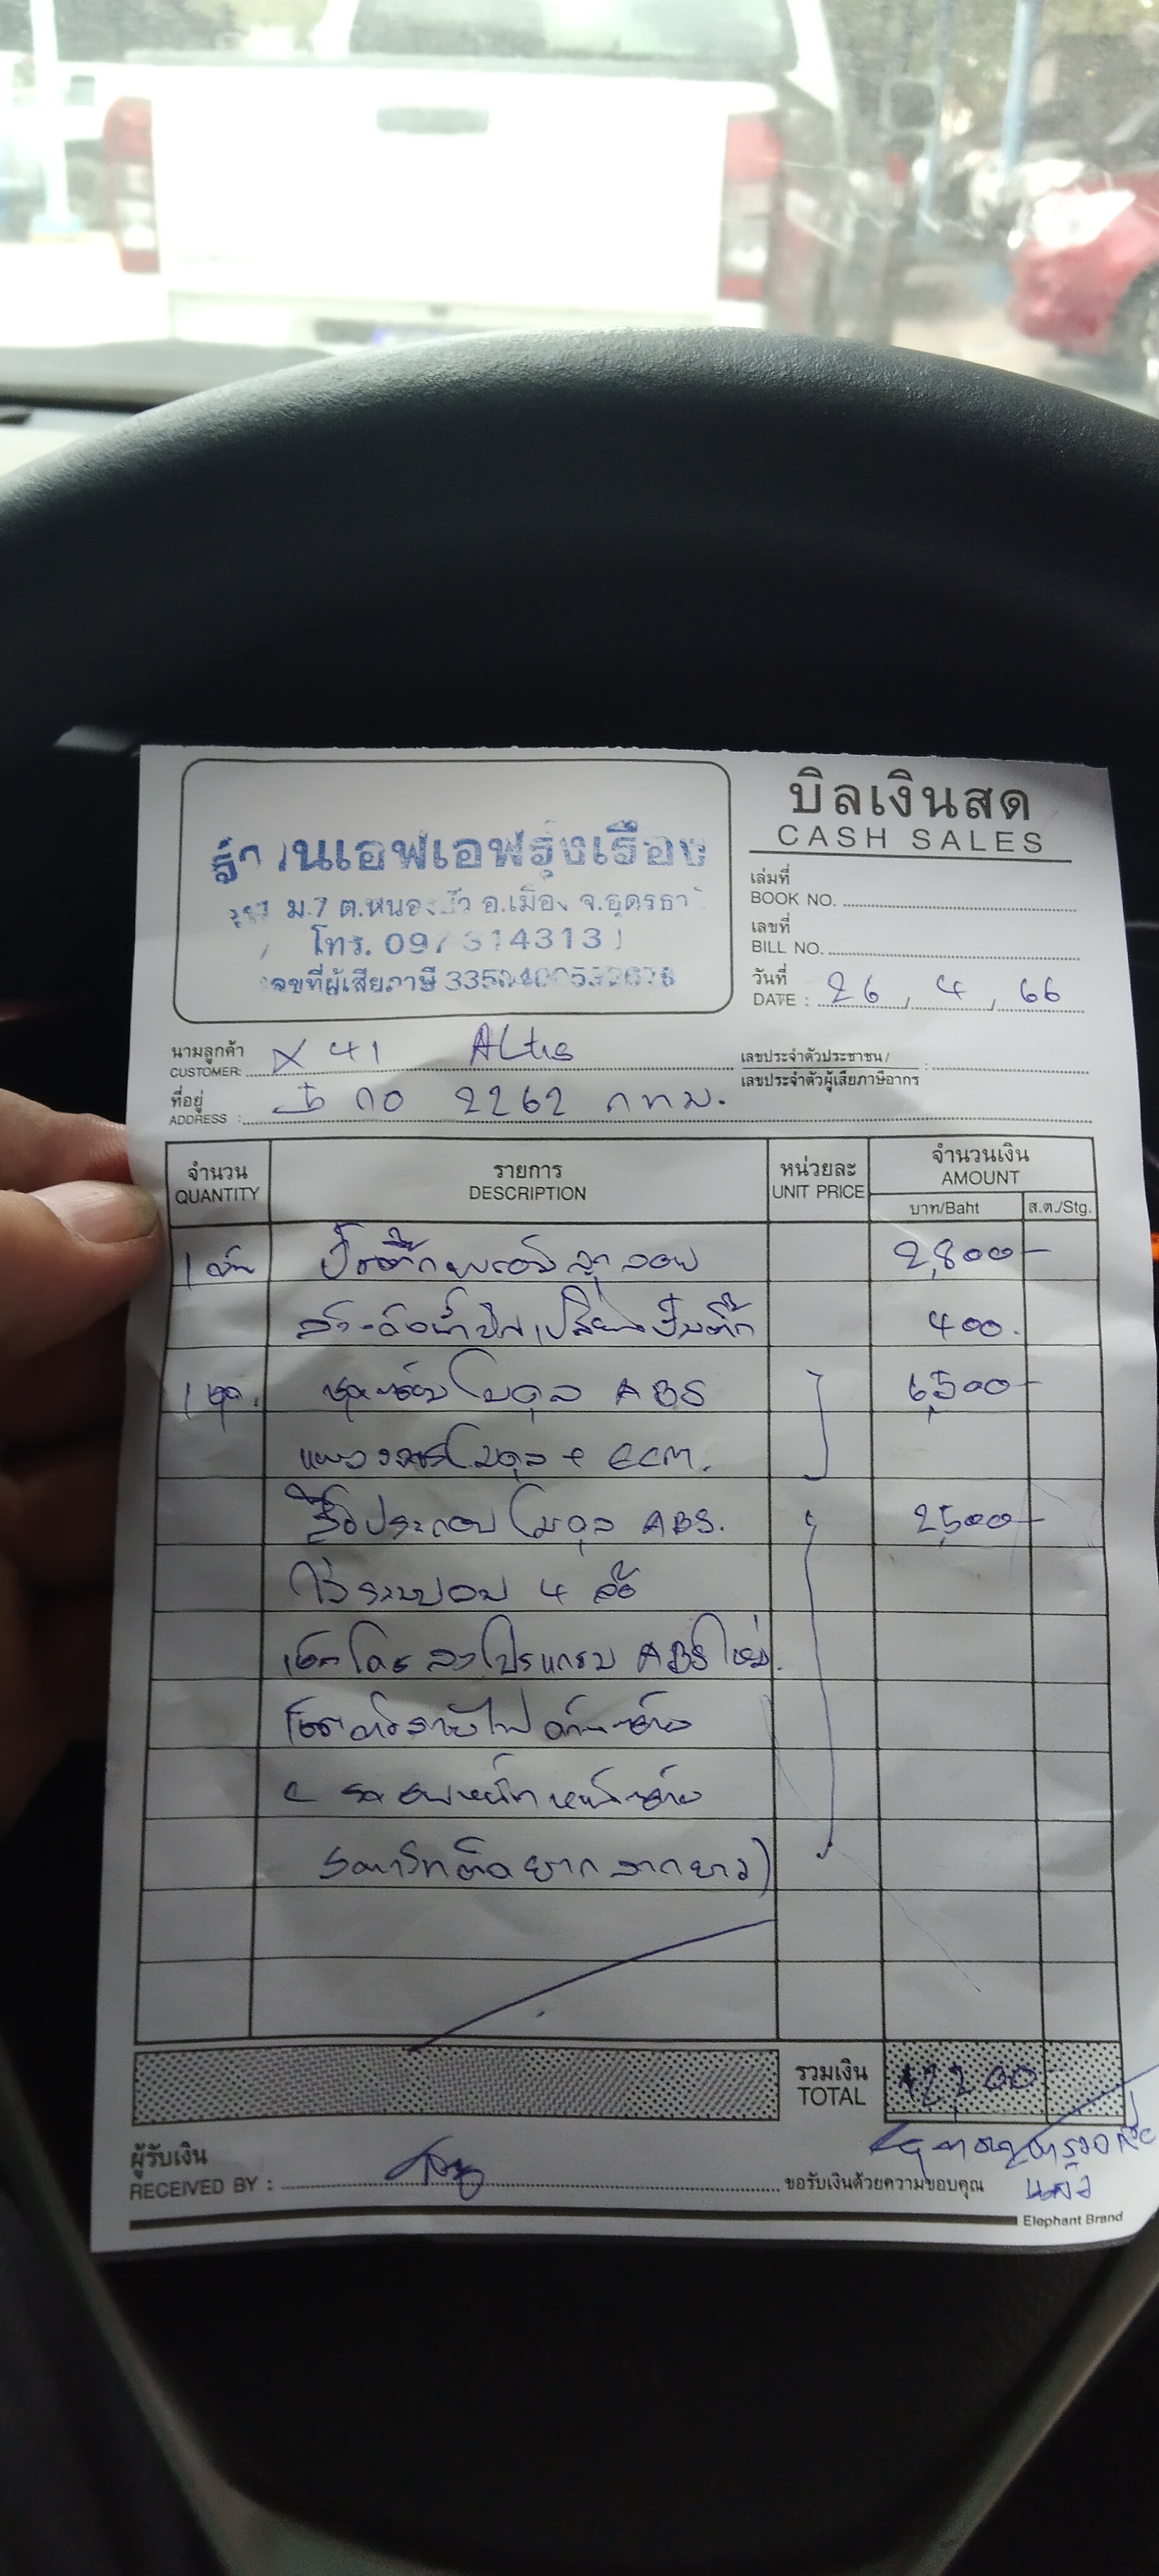 ร้านเอฟเอฟรุ่งเรือง
ม.7 ต.หนองบัว อ.เมือง จ.อุดรธา
โทร.
เลขที่ผู้เสียภาษี
บิลเงินสด
CASH SALES
เล่มที่
BOOK NO.
เลขที่
BILL NO.
วันที่
DATE : 26 / 4 / 66
นามลูกค้า
CUSTOMER: X 41 Altis
เลขประจำตัวประชาชน /
เลขประจำตัวผู้เสียภาษีอากร :
ที่อยู่
ADDRESS : 2262 กทม.
จำนวน
QUANTITY
รายการ
DESCRIPTION
หน่วยละ
UNIT PRICE
จำนวนเงิน
AMOUNT
บาท/Baht
ส.ต./Stg.
ปั๊มติ๊กพร้อมลูกลอย 2,800-
ล้างถังน้ำมัน เปลี่ยนปั๊มติ๊ก 400.
1 ชุด. ชุดซ่อมโมดุล ABS 6,500-
แผงวงจรโมดุล + ECM.
รื้อประกอบโมดุล ABS. 2,500-
ไล่ระบบเบรค 4 ล้อ
ลงโปรแกรม ABS ใหม่.
สายไฟด้านซ้าย
หน้าซ้าย
สตาร์ทติดยาก ลากยาว)
รวมเงิน
TOTAL
12,200-
ผู้รับเงิน
RECEIVED BY :
ขอรับเงินด้วยความขอบคุณ
แล้ว
Elephant Brand